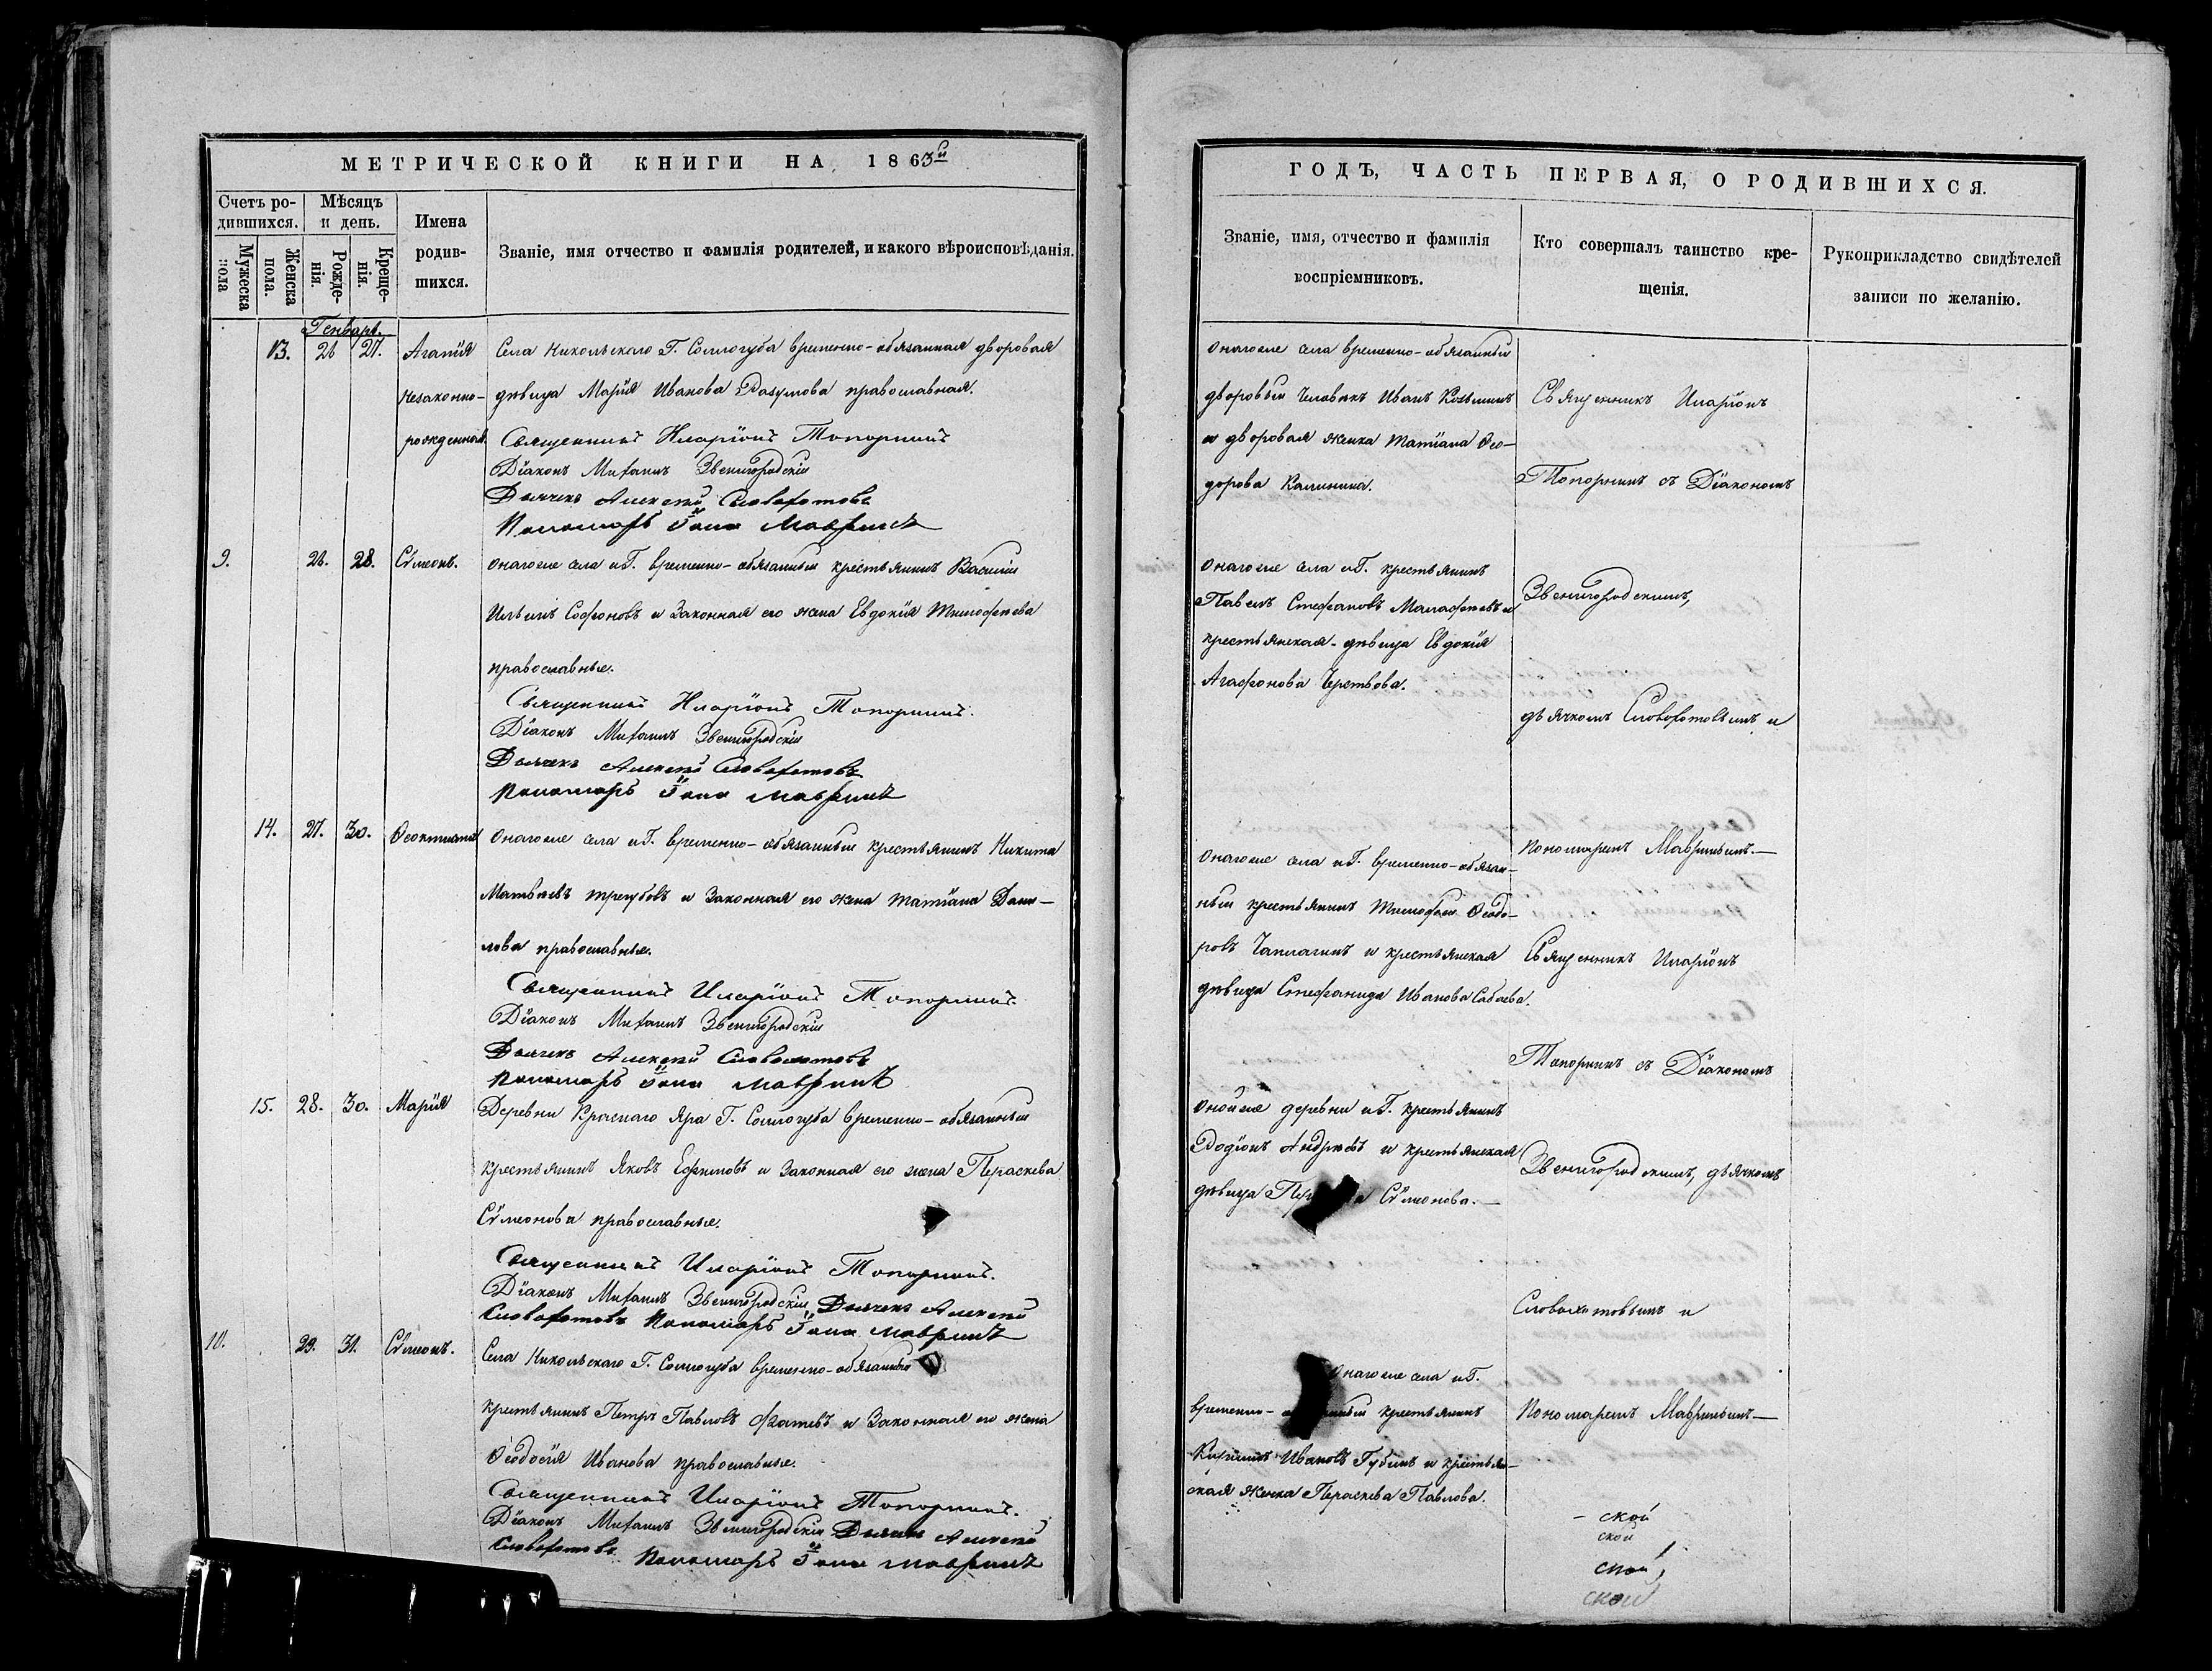 МЕТРИЧЕСКОЙ КНИГИ НА 1863й
Счетъ родившихся.
Мѣсяцъ и день.
Имена родившихся.
Званіе, имя отчество и фамилія родителей, и какого вѣроисповѣданія.
Мужеска пола
Женска пола.
Рожденія.
Крещенія.
Генварь.
13. 26 27. Агапія Села Никольскаго Г. Соллогуба временно-обязанная дворовая
незаконно- дѣвица Марія Иванова Разумова православная.
рожденная. Священникъ Иларіонъ Топорнинъ
Діаконъ Михаилъ Звенигородскій
Дьячекъ Алексѣй Словохотовъ
Пономарь Іона Мавринъ
9. 26. 28. Сѵмеонъ. Онагоже села и Г. временно-обязанный крестьянинъ Василій
Ильинъ Софоновъ и законная его жена Евдокія Тимофеева
православные.
Священникъ Иларіонъ Топорнинъ.
Діаконъ Михаилъ Звенигородскій
Дьячекъ Алексѣй Словохотовъ
Пономарь Іона Мавринъ
14. 27. 30. Ѳеоктиста Онагоже села и Г. временно-обязанный крестьянинъ Никита
Матвѣевъ Трегубовъ и законная его жена Татіана Дани-
лова православные.
Священникъ Иларіонъ Топорнинъ
Діаконъ Михаилъ Звенигородскій
Дьячекъ Алексѣй Словохотовъ
Пономарь Іона Мавринъ
15. 28. 30. Марія Деревни Краснаго Яра Г. Соллогуба временно-обязанный
крестьянинъ Яковъ Ефимовъ и законная его жена Параскева
Сѵмеонова православные.
Священникъ Иларіонъ Топорнинъ.
Діаконъ Михаилъ Звенигородскій Дьячекъ Алексѣй
Словохотовъ Пономарь Іона Мавринъ
10. 29. 31. Сѵмеонъ. Села Никольскаго Г. Соллогуба временно-обязанный
крестьянинъ Петръ Павловъ и законная его жена
Ѳеодосія Иванова православные.
Священникъ Иларіонъ Топорнинъ.
Діаконъ Михаилъ Звенигородскій Дьячекъ Алексѣй
Словохотовъ. Пономарь Іона Мавринъ
ГОДЪ, ЧАСТЬ ПЕРВАЯ, О РОДИВШИХСЯ.
Званіе, имя, отчество и фамилія
воспріемниковъ.
Кто совершалъ таинство кре-
щенія.
Рукоприкладство свидѣтелей
записи по желанію.
Онагоже села временно-обязанный
дворовый человѣкъ Иванъ Козьминъ
и дворовая женка Татіана Ѳео-
дорова Калинина.
Онагоже села и Г. крестьянинъ
Павелъ Стефановъ Малафѣевъ и
крестьянская дѣвица Евдокія
Агафонова
Онагоже села и Г. временно-обязан-
ный крестьянинъ Тимофей Ѳеодо-
ровъ Чаплагинъ и крестьянская
дѣвица Стефанида Иванова Сабаева.
Оной же деревни и Г. крестьянинъ
Родіонъ Андреевъ и крестьянская
дѣвица Сѵмеонова.
Онагоже села и Г.
временно- крестьянинъ
Кириллъ Ивановъ Губинъ и крестьян-
ская женка Параскева Павлова.
Священникъ Иларіонъ
Топорнинъ съ Діакономъ
Звенигородскимъ,
дьячкомъ Словохотовымъ и
Пономаремъ Мавринымъ.
Священникъ Иларіонъ
Топорнинъ съ Діакономъ
Звенигородскимъ, дьячкомъ
Словохотовымъ и
Пономаремъ Мавринымъ
- ской
ской
ской
ской